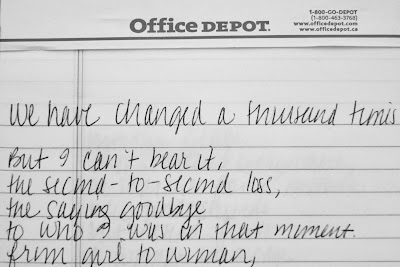 Office DEPOT.
1-800-GO-DEPOT
(1-800-463-3768)
www.officedepot.com
www.officedepot.ca
We have changed a thousand times
But I can't bear it,
the second-to-second loss,
the saying goodbye
to who I was in that moment.
from girl to woman,